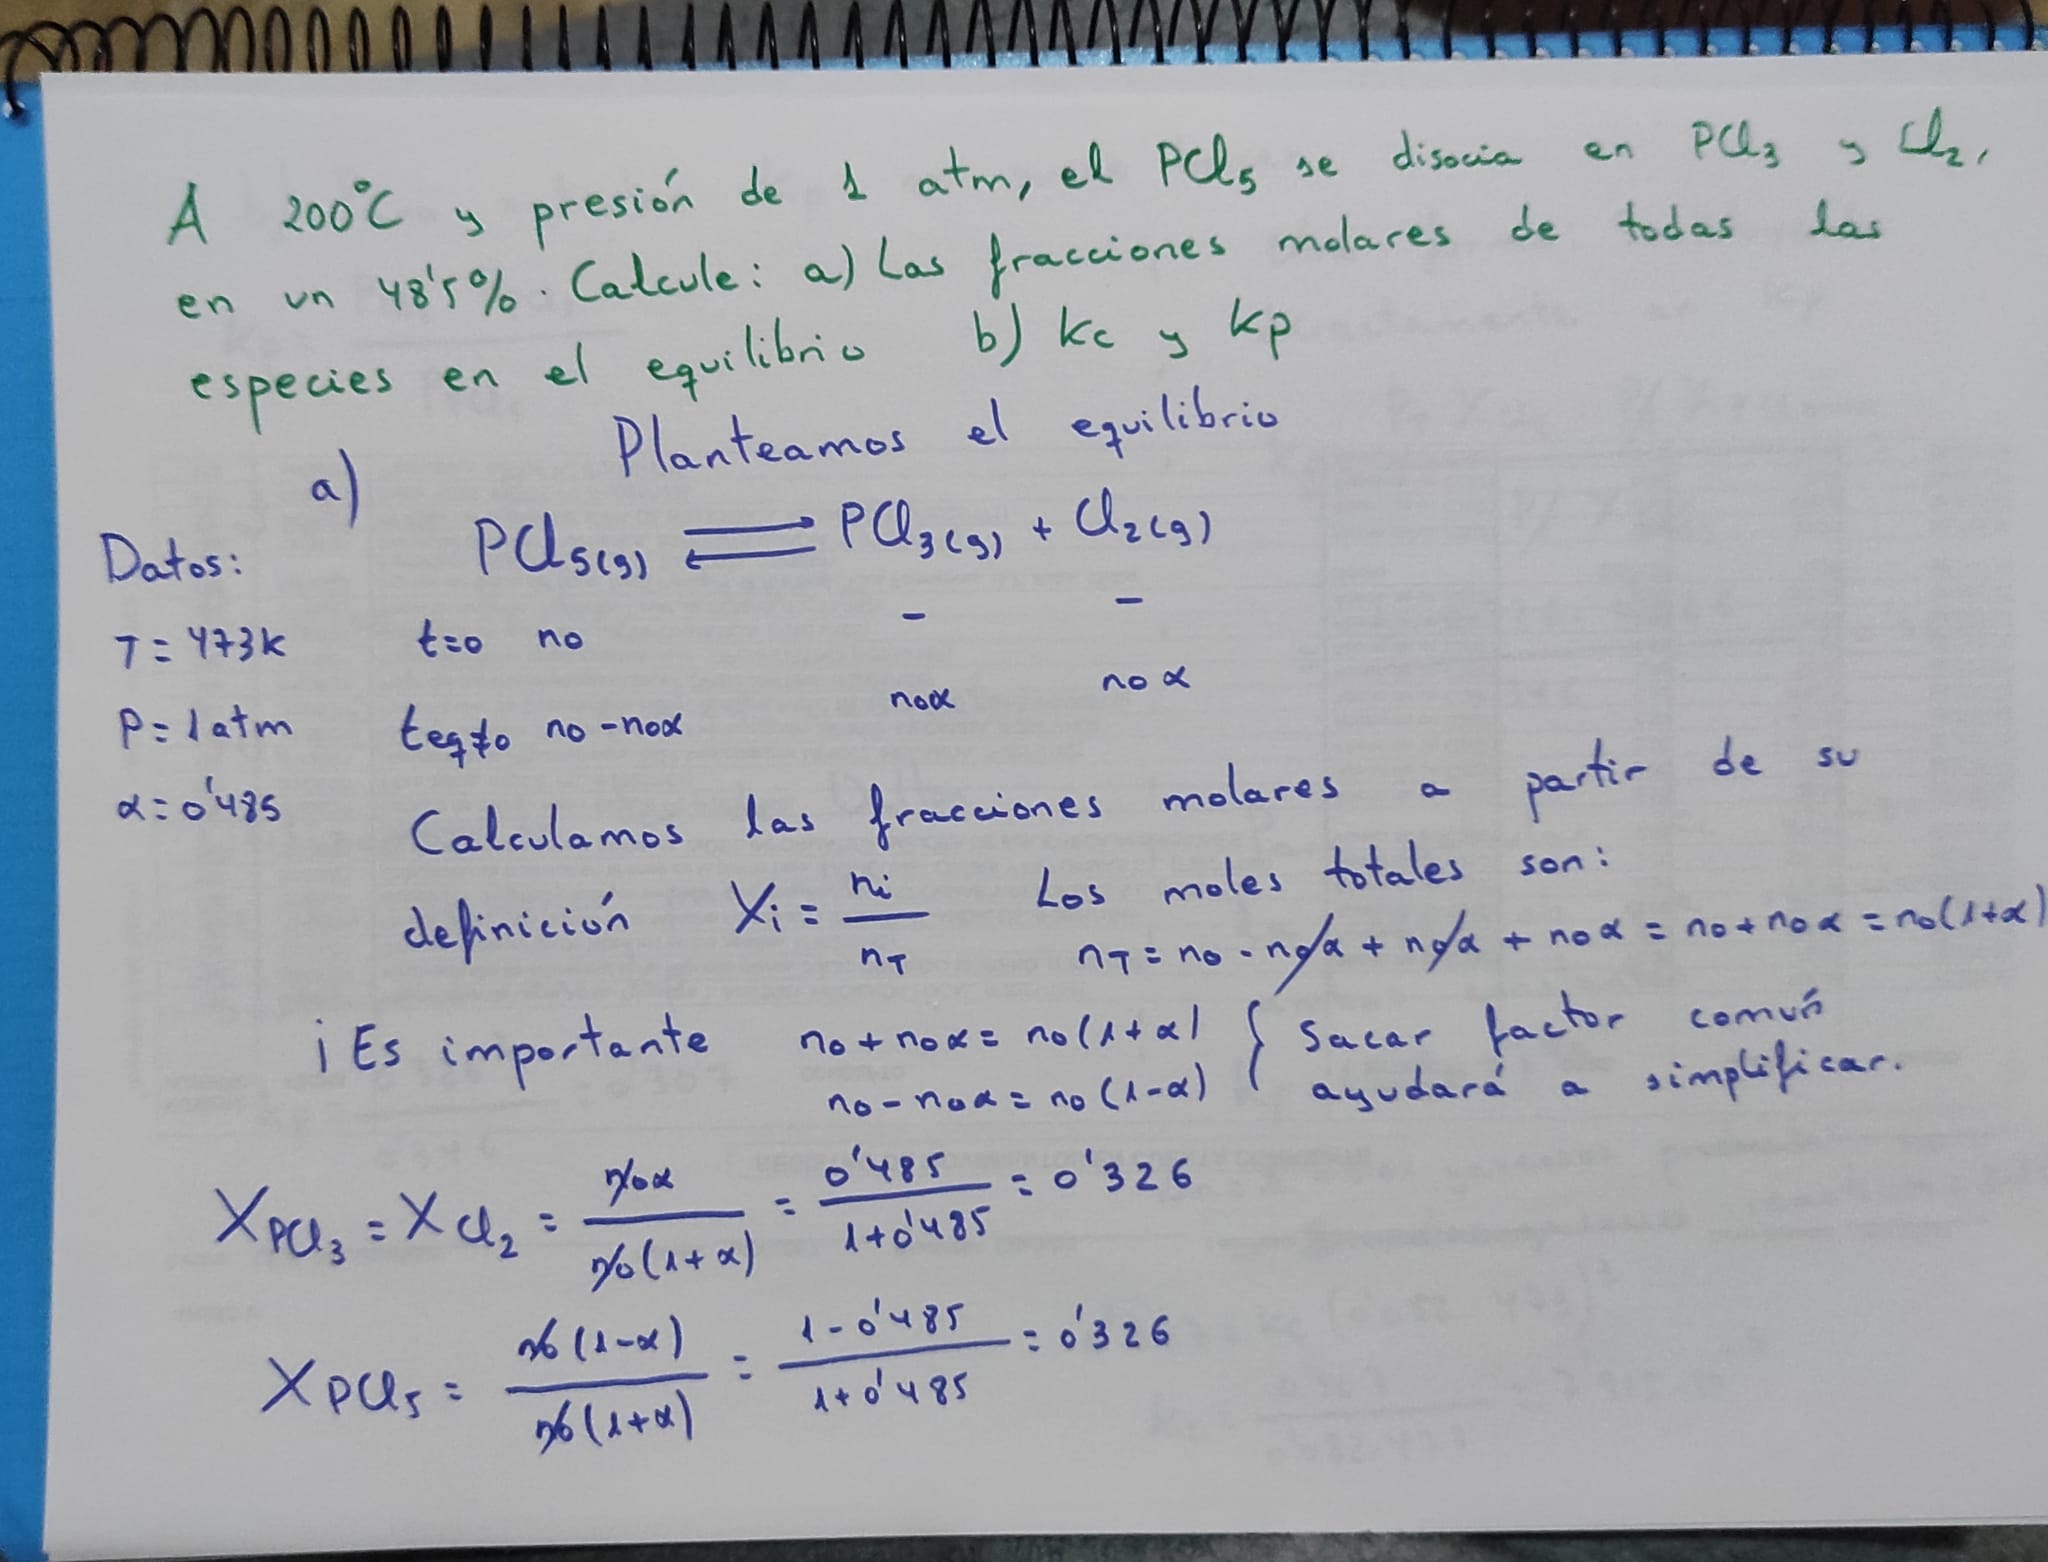 A 200°C y presión de 1 atm, el PCl₅ se disocia en PCl₃ y Cl₂,
en un 48'5%. Calcule: a) Las fracciones molares de todas las
especies en el equilibrio b) Kc y Kp
a) Planteamos el equilibrio
PCl₅(g) ⇌ PCl₃(g) + Cl₂(g)
Datos:
T = 473K t=0 no - -
P = 1 atm teq≠0 no - noα noα noα
α = 0'485
Calculamos las fracciones molares a partir de su
definición Xi = ni / nT Los moles totales son:
nT = no - noα + noα + noα = no + noα = no(1+α)
¡Es importante no + noα = no(1+α) } Sacar factor común
no - noα = no(1-α) ayudará a simplificar.
X PCl₃ = X Cl₂ = noα / no(1+α) = 0'485 / 1+0'485 = 0'326
X PCl₅ = no(1-α) / no(1+α) = 1-0'485 / 1+0'485 = 0'326